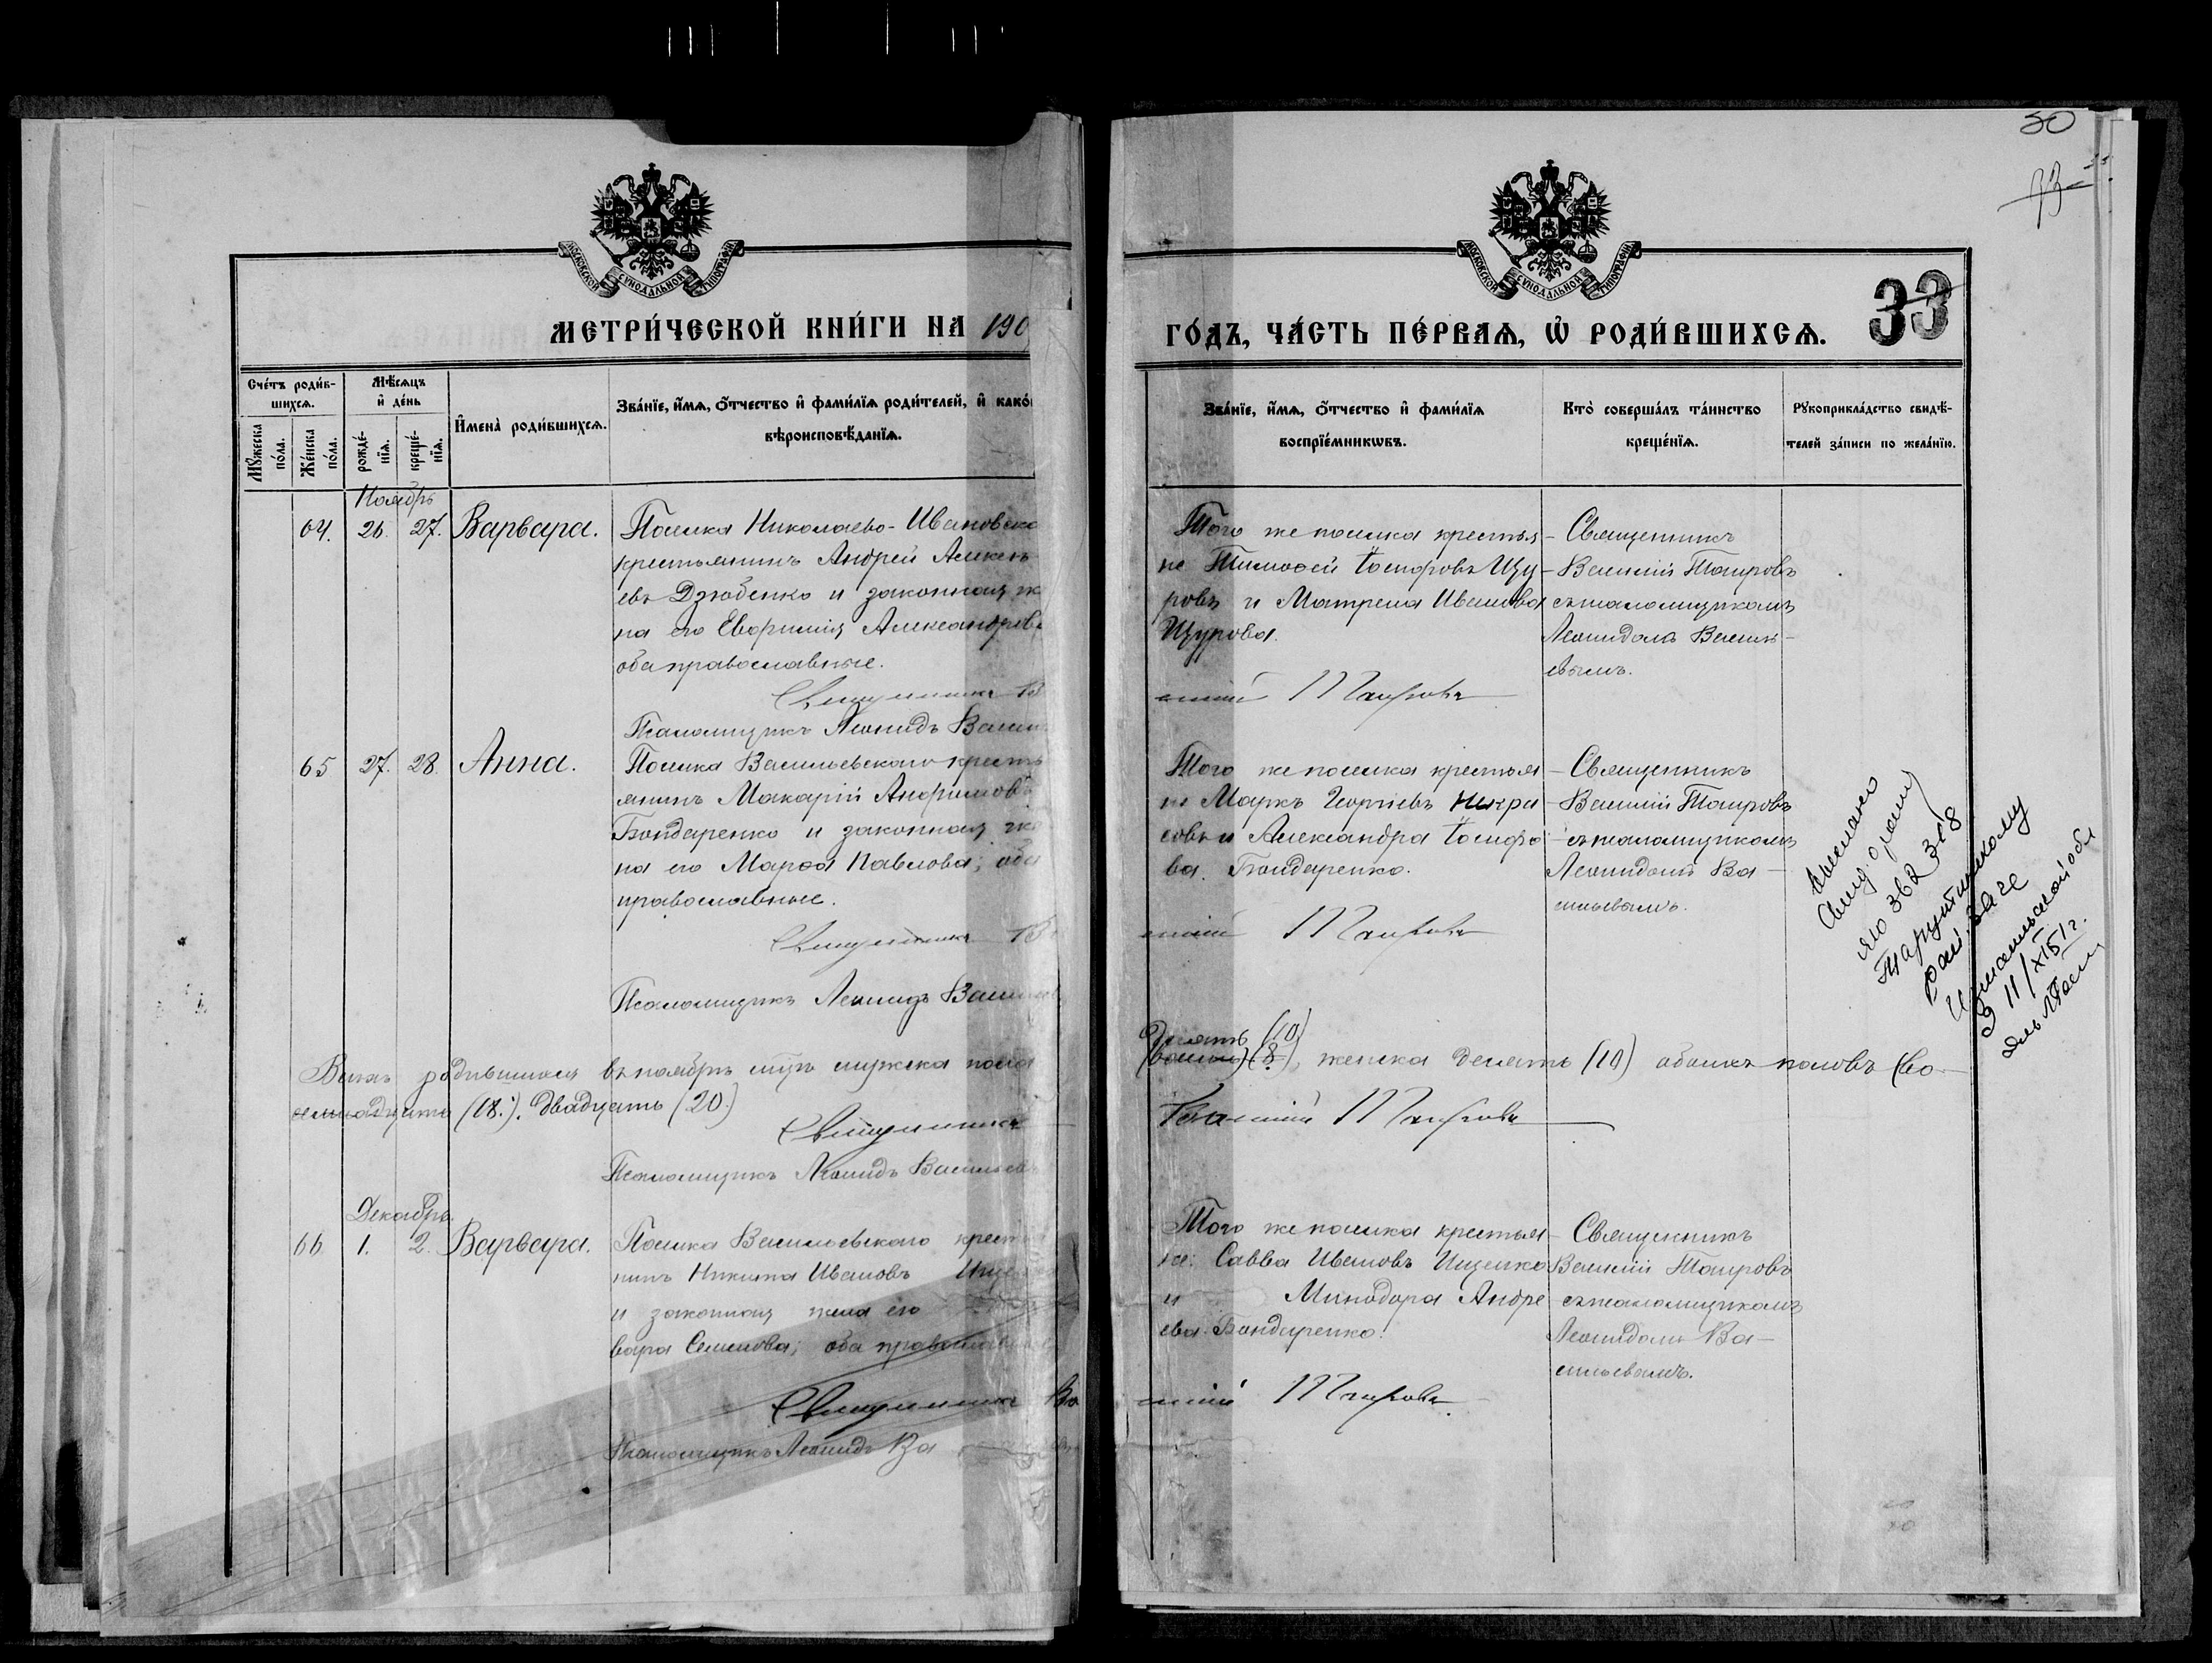 30
33
МОСКОВСКОЙ СѴНОДАЛЬНОЙ ТИПОГРАФІИ
МОСКОВСКОЙ СѴНОДАЛЬНОЙ ТИПОГРАФІИ
МЕТРИ́ЧЕСКОЙ КНИ́ГИ НА 190
ГО́ДЪ, ЧА́СТЬ ПЕ́РВАѦ, Ѡ҆ РОДИ́ВШИХСѦ.
33
Сче́тъ роди́в-
шихсѧ.
Мꙋ́жеска по́ла.
Же́нска по́ла.
Мѣ́сѧцъ
и҆ де́нь
рожде́-
нїѧ.
креще́-
нїѧ.
И҆мена̀ роди́вшихсѧ.
Зва́нїе, и҆́мѧ, о҆́тчество и҆ фами́лїѧ роди́телей, и҆ како́
вѣроисповѣ́данїѧ.
Зва́нїе, и҆́мѧ, о҆́тчество и҆ фами́лїѧ
воспрїе́мникѡвъ.
Кто̀ соверша́лъ та́инство
креще́нїѧ.
Рꙋкоприкла́дство свидѣ́-
телей за́писи по жела́нїю.
Ноябрь
64. 26. 27. Варвара.
Поселка Николаево-Ивановска
крестьянинъ Андрей Алексѣ
евъ Дзюбенко и законная ж
на его Евфимія Александрова
оба православные.
Священникъ В
Псаломщикъ Леонидъ Васил
Того же поселка крестья-
не Тимоѳей Іосифовъ Щу-
ровъ и Матрена Иванова
Щурова.
силій Таировъ
Священникъ
Василій Таировъ
съ псаломщикомъ
Леонидомъ Василь-
евымъ.
65 27. 28. Анна.
Поселка Васильевскаго кресть
янинъ Макарій Анфимовъ
Бондаренко и законная же
на его Марѳа Павлова; оба
православные.
Священникъ Ва
Псаломщикъ Леонидъ Василь
Того же поселка крестья
не Маркъ Георгіевъ Некра
совъ и Александра Іосифо
ва Бондаренко.
силій Таировъ
Священникъ
Василій Таировъ
съ псаломщикомъ
Леонидомъ Ва-
сильевымъ.
Выслано
362 368
11/XI 51 г.
Всѣхъ родившихся въ ноябрѣ мѣц мужска пола
Десять (10)
(восемь) (8), женска десять (10) обоихъ половъ (во-
семнадцать (18.). двадцать (20.)
Священникъ
Василій Таировъ
Псаломщикъ Леонидъ Васильевъ
Декабрь.
66 1. 2. Варвара.
Поселка Васильевскаго крест
нинъ Никита Ивановъ Ище
и законная жена его
вара Семенова; оба православ
Священникъ Ва
Псаломщикъ Леонидъ Ва
Того же поселка крестья-
не: Савва Ивановъ Ищенко
и Минодора Андре
ева Бондаренко.
силій Таировъ.
Священникъ
Василій Таировъ
съ псаломщикомъ
Леонидомъ Ва-
сильевымъ.